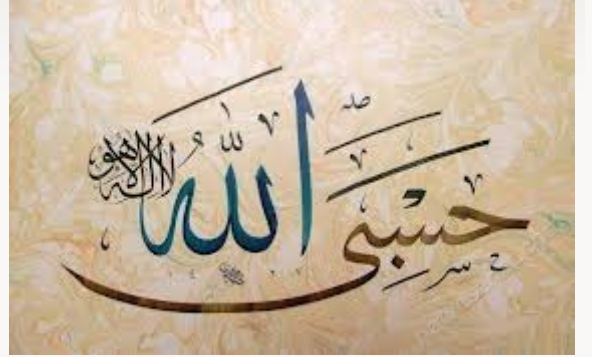 حسبي الله
لا اله الا هو